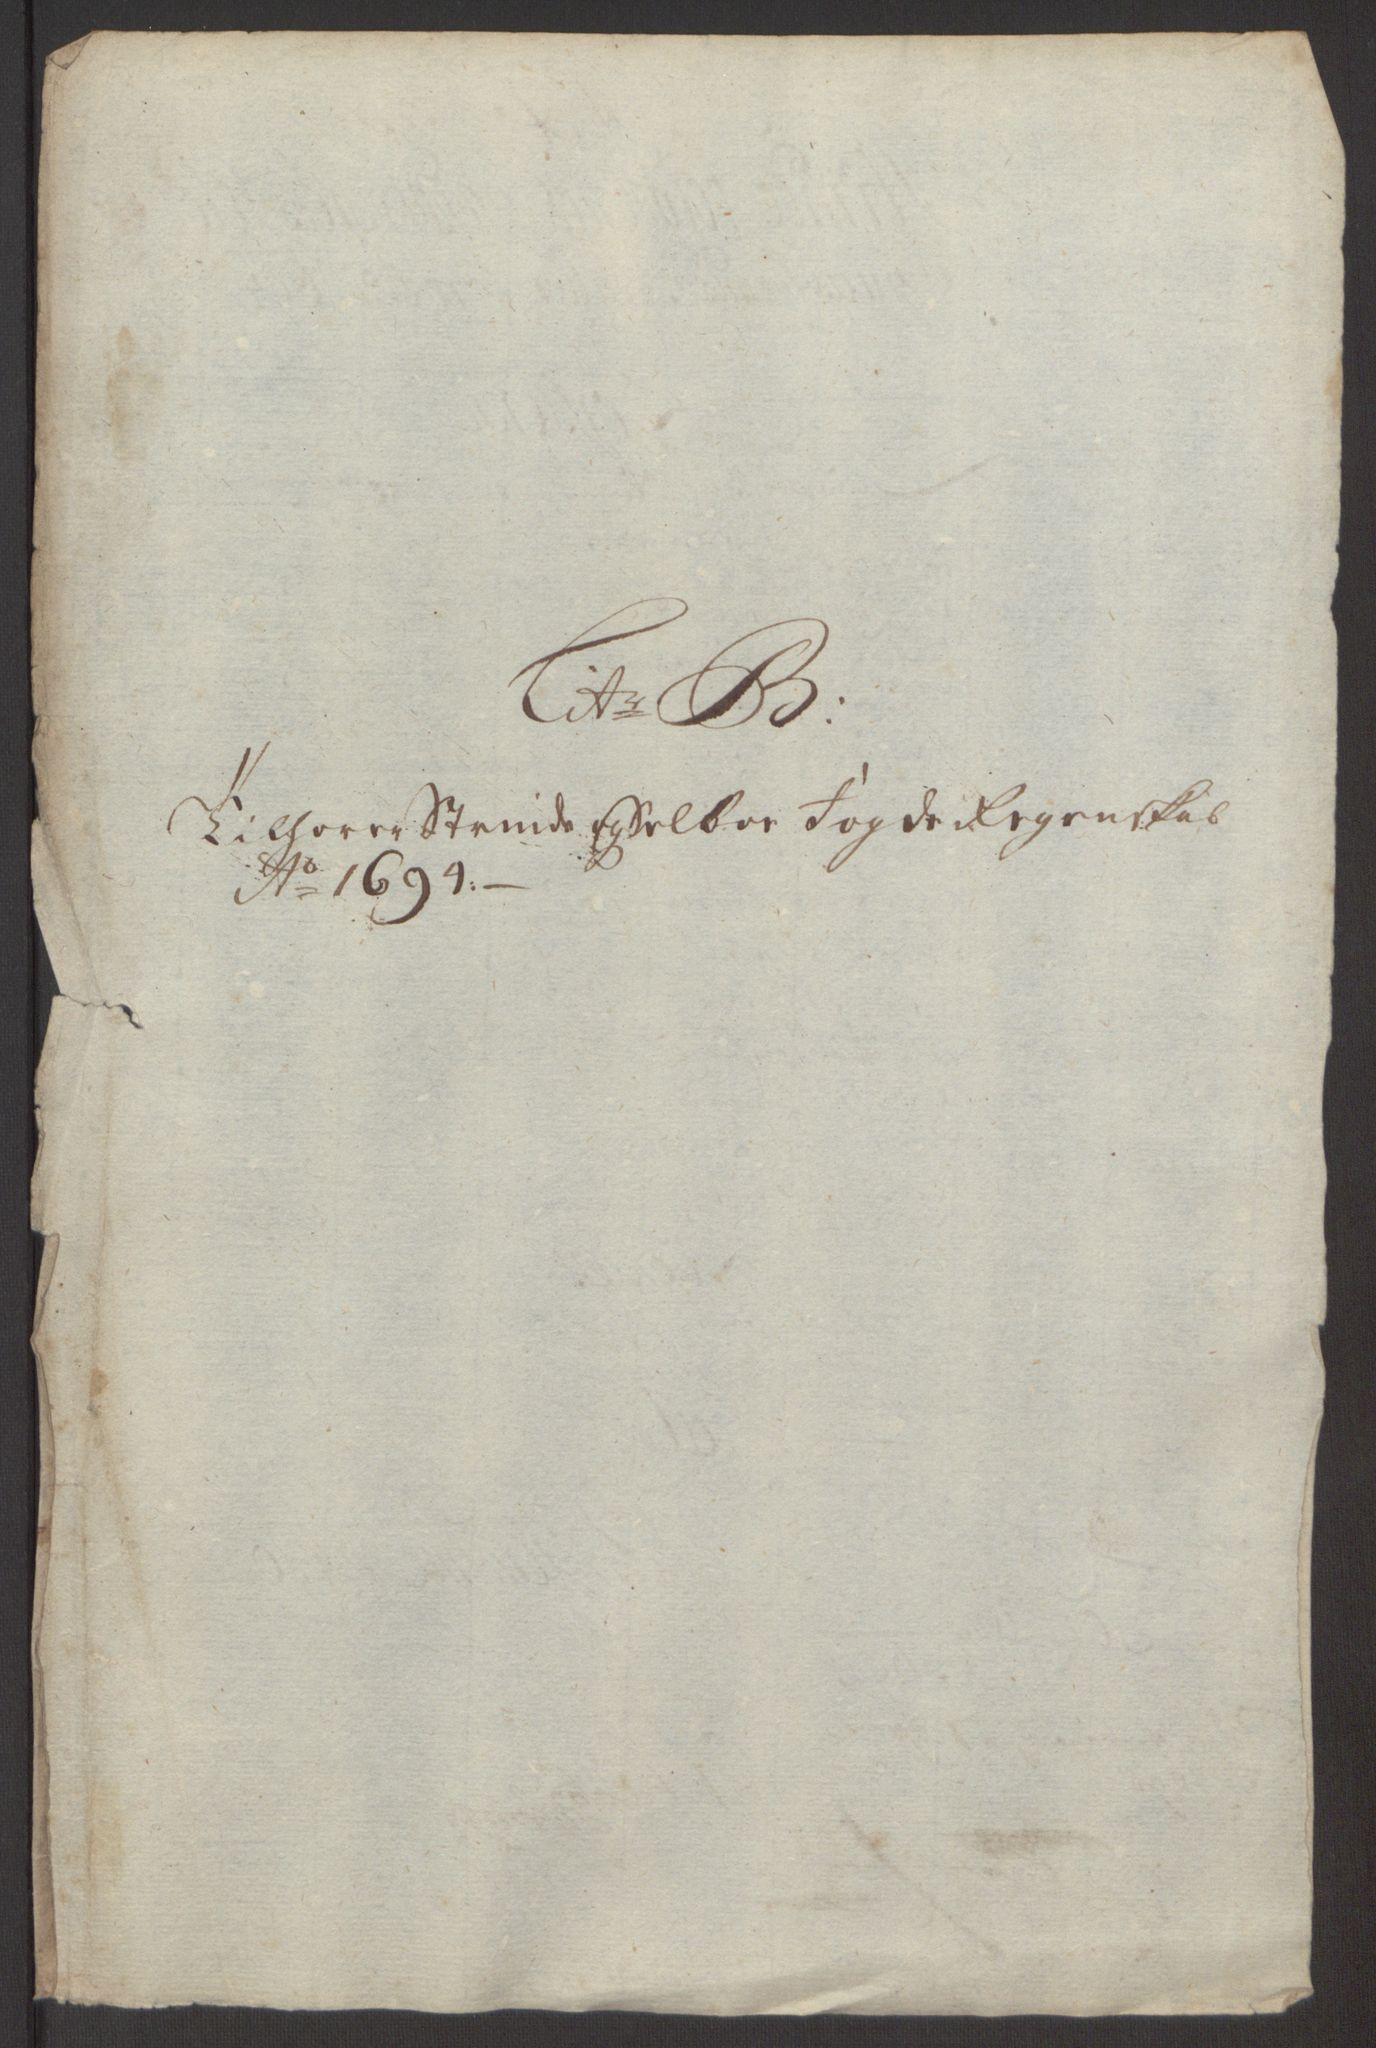 Litr B:
Tilhörer Strinde og Selboe Fogderi Regenskab
Ao 1694:—